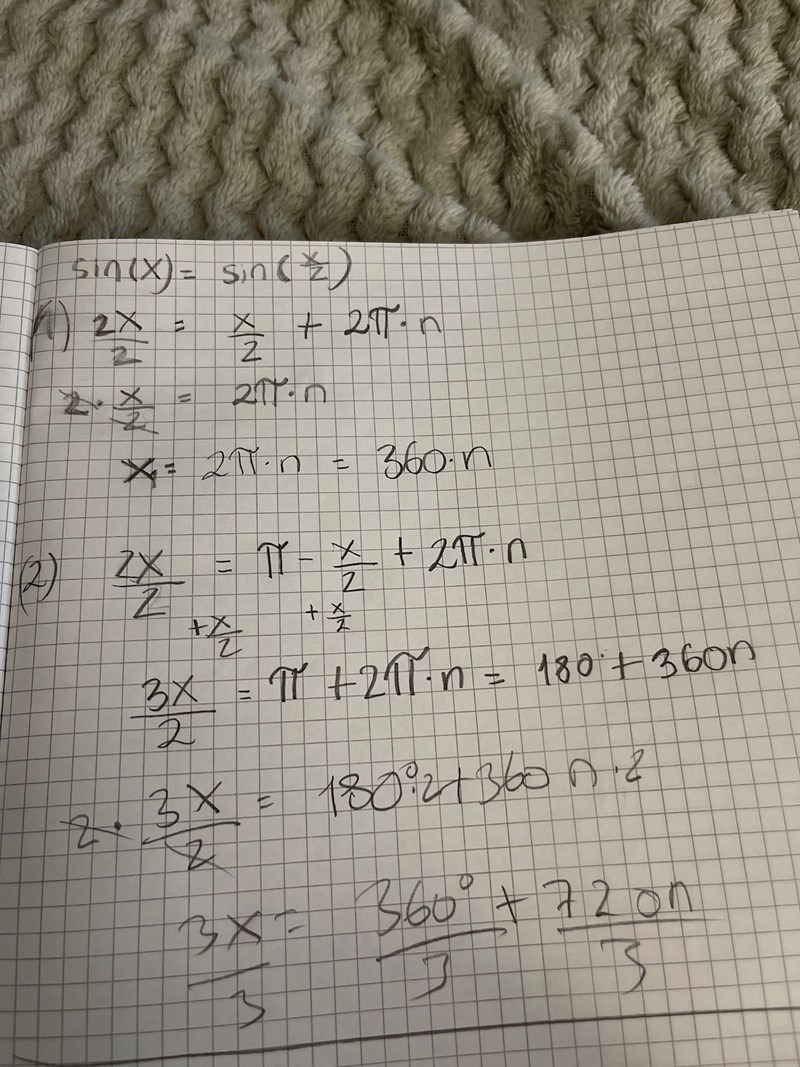 sin(x) = sin(x/2)
1) 2x/2 = x/2 + 2π·n
2· x/2 = 2π·n
x = 2π·n = 360·n
(2) 2x/2 = π - x/2 + 2π·n
+x/2 +x/2
3x/2 = π + 2π·n = 180° + 360n
2· 3x/2 = 180°·2 + 360n·2
3x/3 = 360°/3 + 720n/3